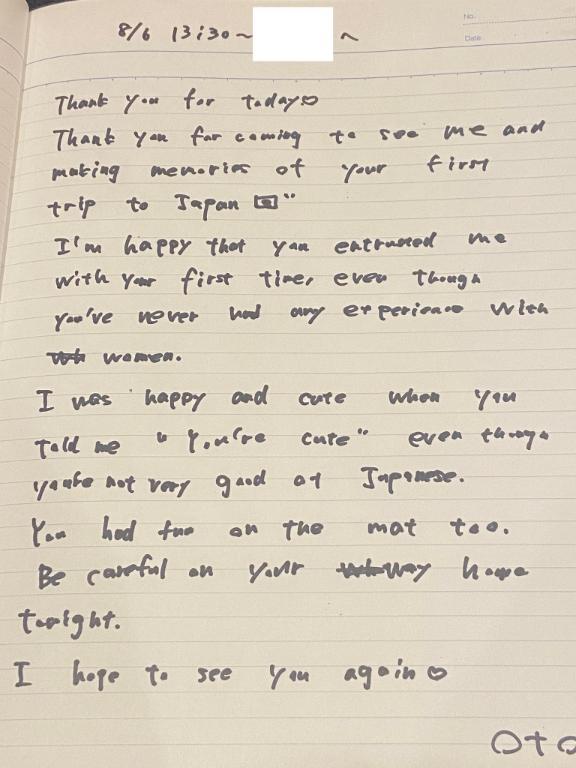 8/6 13:30~ ~
No.
Date
Thank you for today♡
Thank you for coming to see me and
making memories of your first
trip to Japan 🇯🇵"
I'm happy that you entrusted me
with your first time, even though
you've never had any experience with
women.
I was happy and cute when you
told me "You're cute" even though
you're not very good at Japanese.
You had fun on the mat too.
Be careful on your way home
tonight.
I hope to see you again♡